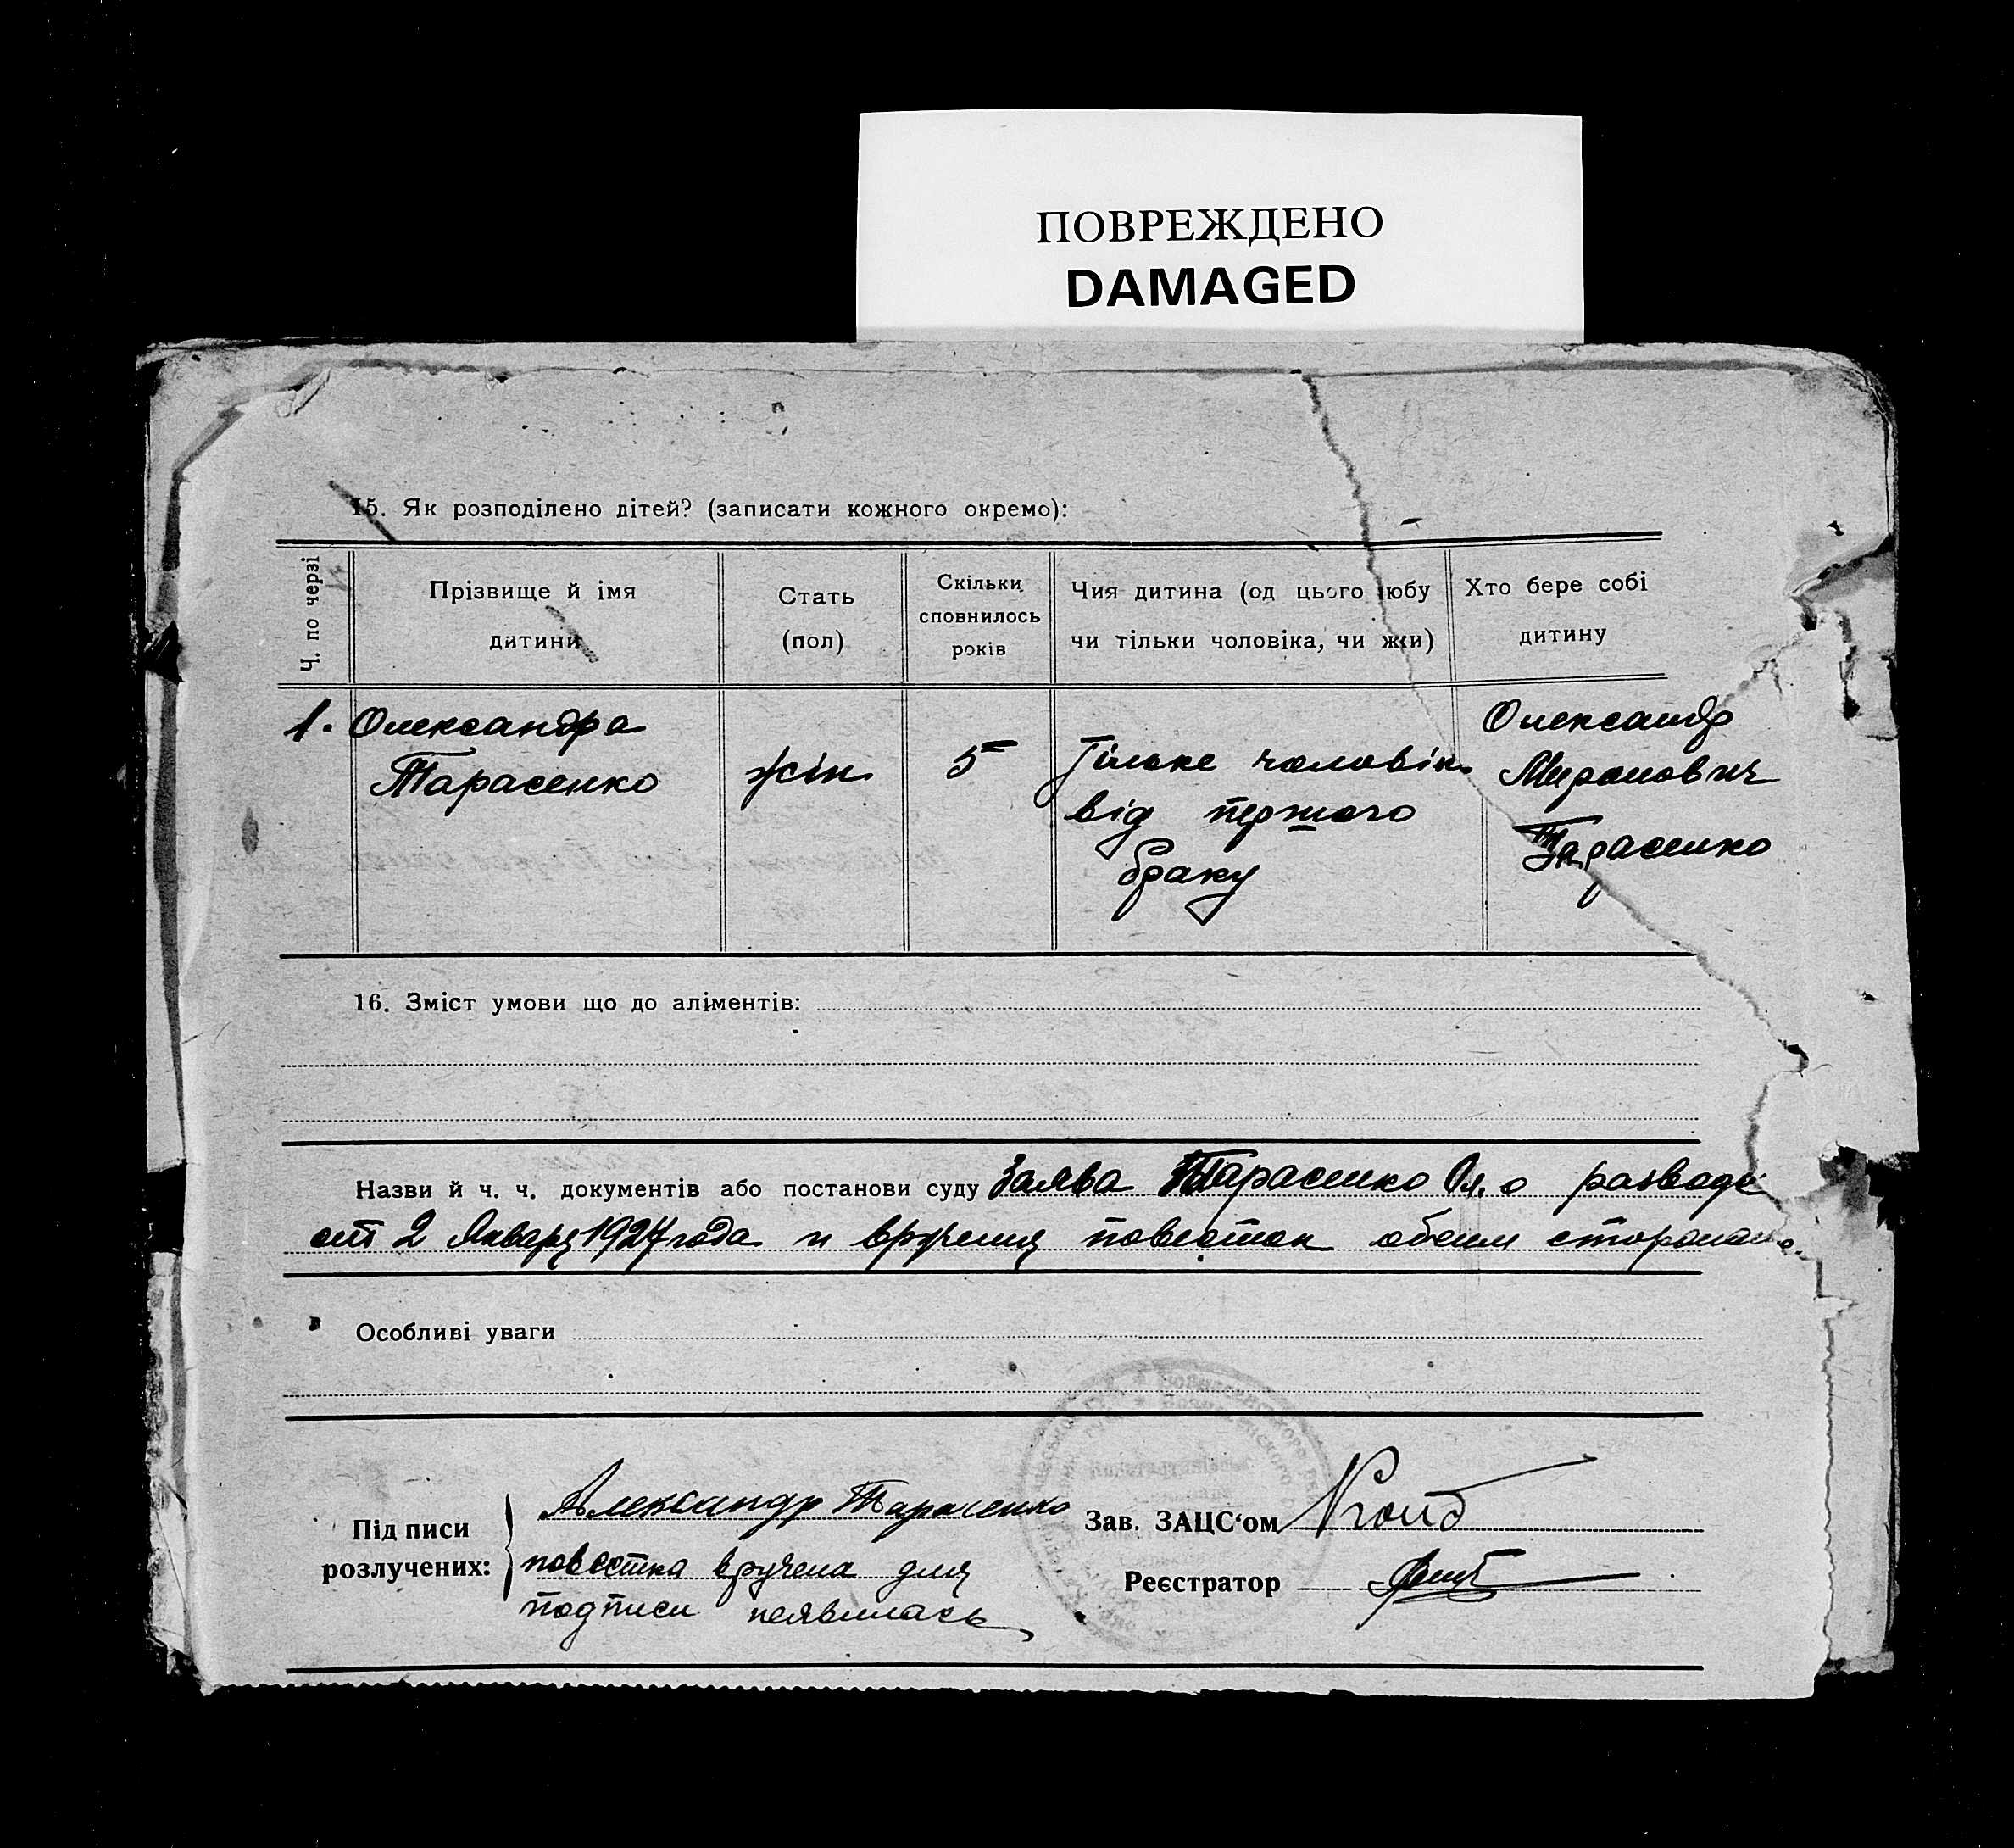 ПОВРЕЖДЕНО
DAMAGED
15. Як розподілено дітей? (записати кожного окремо):
Ч. по черзі
Прізвище й імя
дитини
Стать
(пол)
Скільки
сповнилось
років
Чия дитина (од цього любу
чи тільки чоловіка, чи жки)
Хто бере собі
дитину
1. Олександра
Тарасенко
жін.
5
Тільке чоловік
від першого
браку
Олександр
Миронович
Тарасенко
16. Зміст умови що до аліментів:
Назви й ч. ч. документів або постанови суду Заява Тарасенко Ол. о разводе
от 2 Января 1927 года и вручения повесток обеим сторонам.
Особливі уваги
Підписи
розлучених:
Александр Тарасенко
повестка вручена для
подписи неявилась
Зав. ЗАЦС‘ом
Реєстратор